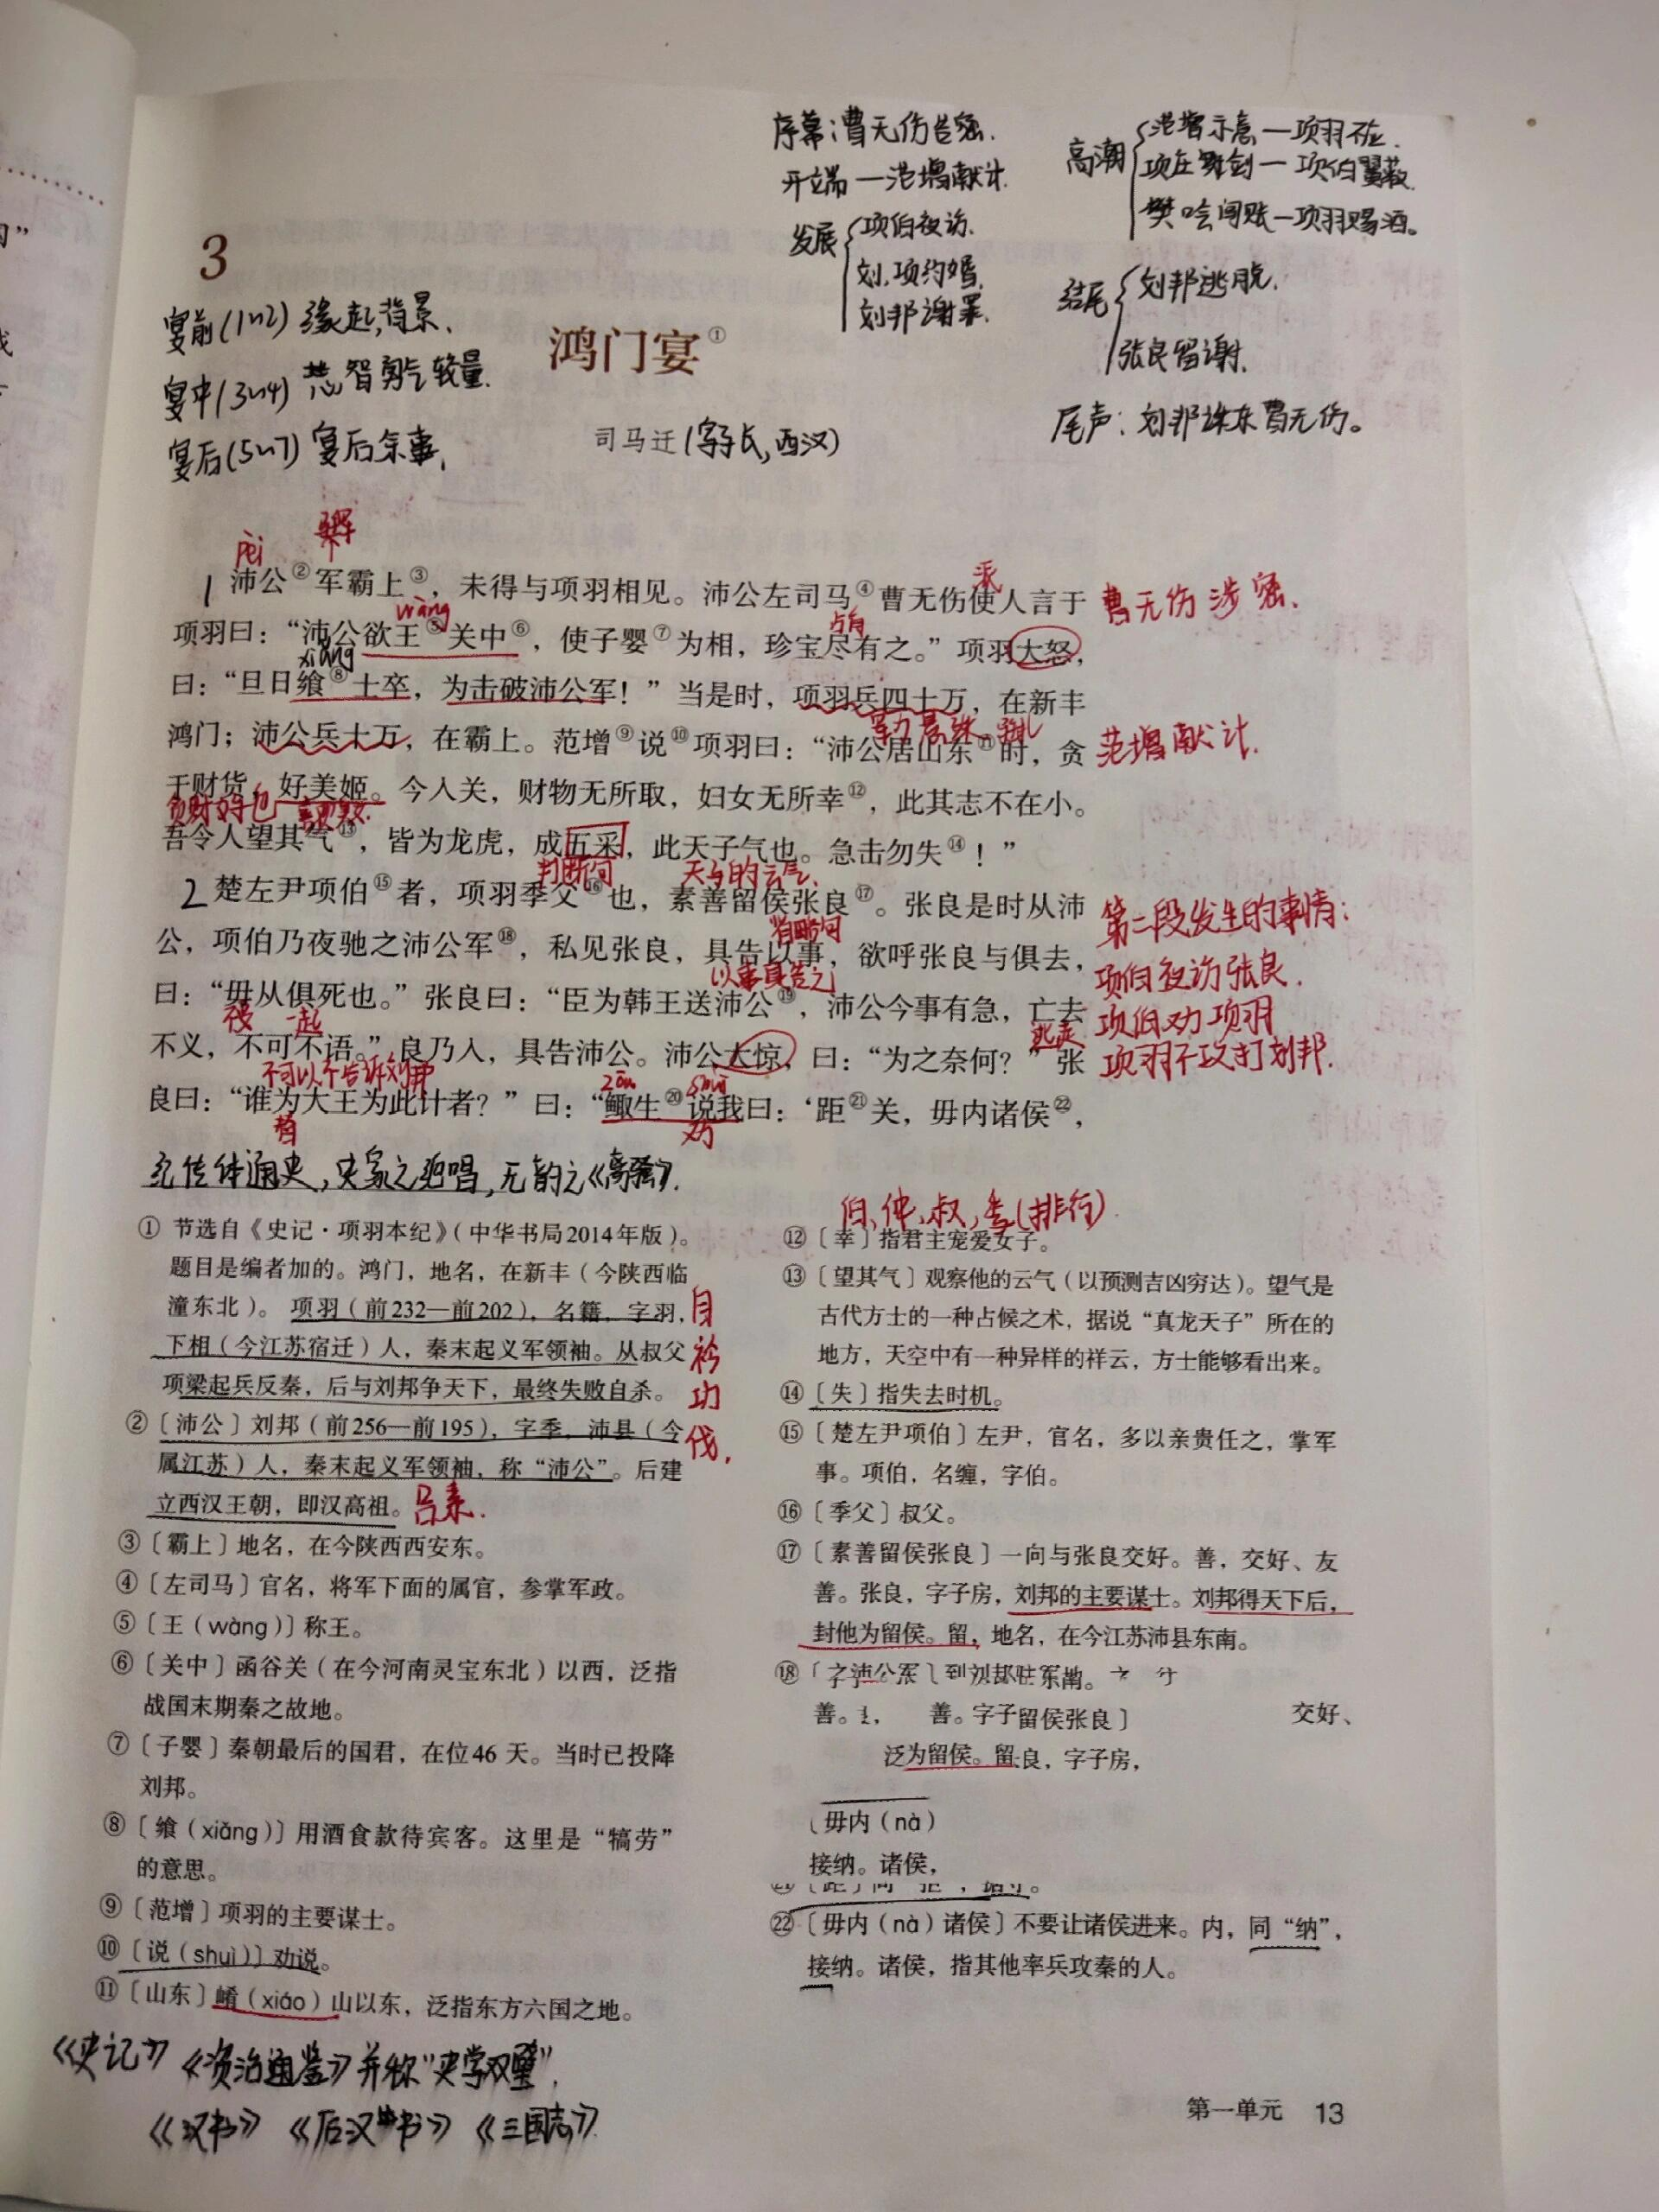 序幕：曹无伤告密.
开端—范增献计.
发展
项伯夜访.
刘,项约婚,
刘邦谢罪.
高潮
范增示意—项羽不应.
项庄舞剑—项伯翼蔽.
樊哙闯帐—项羽赐酒。
结尾
刘邦逃脱.
张良留谢.
尾声：刘邦诛杀曹无伤。
3
宴前(1~2) 缘起,背景、
宴中(3~4) 智勇较量.
宴后(5~7) 宴后余事,
鸿门宴①
司马迁(字子长,西汉)
pèi
1 沛公②军霸上③，未得与项羽相见。沛公左司马④曹无伤使人言于
曹无伤 涉密.
wàng
占有
项羽曰：“沛公欲王⑤关中⑥，使子婴⑦为相，珍宝尽有之。”项羽大怒，
xiǎng
曰：“旦日飨⑧士卒，为击破沛公军！”当是时，项羽兵四十万，在新丰
鸿门；沛公兵十万，在霸上。范增⑨说⑩项羽曰：“沛公居山东⑪时，贪
范增献计.
于财货，好美姬。今入关，财物无所取，妇女无所幸⑫，此其志不在小。
贪财好色
吾令人望其气⑬，皆为龙虎，成五采，此天子气也。急击勿失⑭！”
判断句
天子的云气.
2 楚左尹项伯⑮者，项羽季父⑯也，素善留侯张良⑰。张良是时从沛
第二段发生的事情：
省略句
公，项伯乃夜驰之沛公军⑱，私见张良，具告以事，欲呼张良与俱去，
以事具告之
项伯夜访张良.
曰：“毋从俱死也。”张良曰：“臣为韩王送沛公⑲，沛公今事有急，亡去
一起
逃走
项伯劝项羽
不义，不可不语。”良乃入，具告沛公。沛公大惊，曰：“为之奈何？”张
不可以不告诉刘邦
项羽不攻打刘邦.
zōu shuì
良曰：“谁为大王为此计者？”曰：“鲰生⑳说我曰：‘距㉑关，毋内诸侯㉒，
替
劝
纪传体通史,史家之绝唱,无韵之《离骚》.
伯、仲、叔,季(排行)
①节选自《史记·项羽本纪》（中华书局2014年版）。
题目是编者加的。鸿门，地名，在新丰（今陕西临
潼东北）。项羽（前232—前202），名籍，字羽，
下相（今江苏宿迁）人，秦末起义军领袖。从叔父
项梁起兵反秦，后与刘邦争天下，最终失败自杀。
自矜功伐.
②〔沛公〕刘邦（前256—前195），字季，沛县（今
属江苏）人，秦末起义军领袖，称“沛公”。后建
立西汉王朝，即汉高祖。
③〔霸上〕地名，在今陕西西安东。
④〔左司马〕官名，将军下面的属官，参掌军政。
⑤〔王（wàng）〕称王。
⑥〔关中〕函谷关（在今河南灵宝东北）以西，泛指
战国末期秦之故地。
⑦〔子婴〕秦朝最后的国君，在位46天。当时已投降
刘邦。
⑧〔飨（xiǎng）〕用酒食款待宾客。这里是“犒劳”
的意思。
⑨〔范增〕项羽的主要谋士。
⑩〔说（shuì）〕劝说。
⑪〔山东〕崤（xiáo）山以东，泛指东方六国之地。
⑫〔幸〕指君主宠爱女子。
⑬〔望其气〕观察他的云气（以预测吉凶穷达）。望气是
古代方士的一种占候之术，据说“真龙天子”所在的
地方，天空中有一种异样的祥云，方士能够看出来。
⑭〔失〕指失去时机。
⑮〔楚左尹项伯〕左尹，官名，多以亲贵任之，掌军
事。项伯，名缠，字伯。
⑯〔季父〕叔父。
⑰〔素善留侯张良〕一向与张良交好。善，交好、友
善。张良，字子房，刘邦的主要谋士。刘邦得天下后，
封他为留侯。留，地名，在今江苏沛县东南。
⑱〔之沛公军〕到刘邦驻军地。
善。 善。字子留侯张良〕 交好、
泛为留侯。留良，字子房，
〔毋内（nà）
接纳。诸侯，
㉒〔毋内（nà）诸侯〕不要让诸侯进来。内，同“纳”，
接纳。诸侯，指其他率兵攻秦的人。
《史记》《资治通鉴》并称“史学双璧”.
《汉书》《后汉书》《三国志》.
第一单元 13